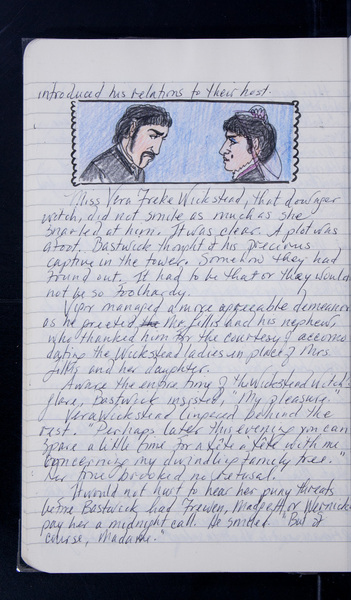 introduced his relations to their host.
Miss Vera Freke Wickstead, that dowager
witch, did not smile as much as she
snarled at him. It was clear. A plot was
afoot. Bastwick thought of his precious
captive in the tower. Somehow they had
found out. It had to be that or they wouldn
not be so foolhardy.
managed a more agreeable demeanor
as he greeted the Mr. Fillis and his nephew,
who thanked him for the courtesy of accomo
dating the Wickstead ladies in place of Mrs.
Fillis and her daughter.
Aware the entire time of the Wickstead witch's
glare, Bastwick insisted, "My pleasure."
Vera Wickstead lingered behind the
rest. "Perhaps later this evening you can
spare a little time for a tête à tête with me
concerning my dwindling family tree."
Her tone brooked no refusal.
It would not hurt to hear her puny threats
before Bastwick had Frewen, Madgett or Wernick
pay her a midnight call. He smiled. "But of
course, Madame."